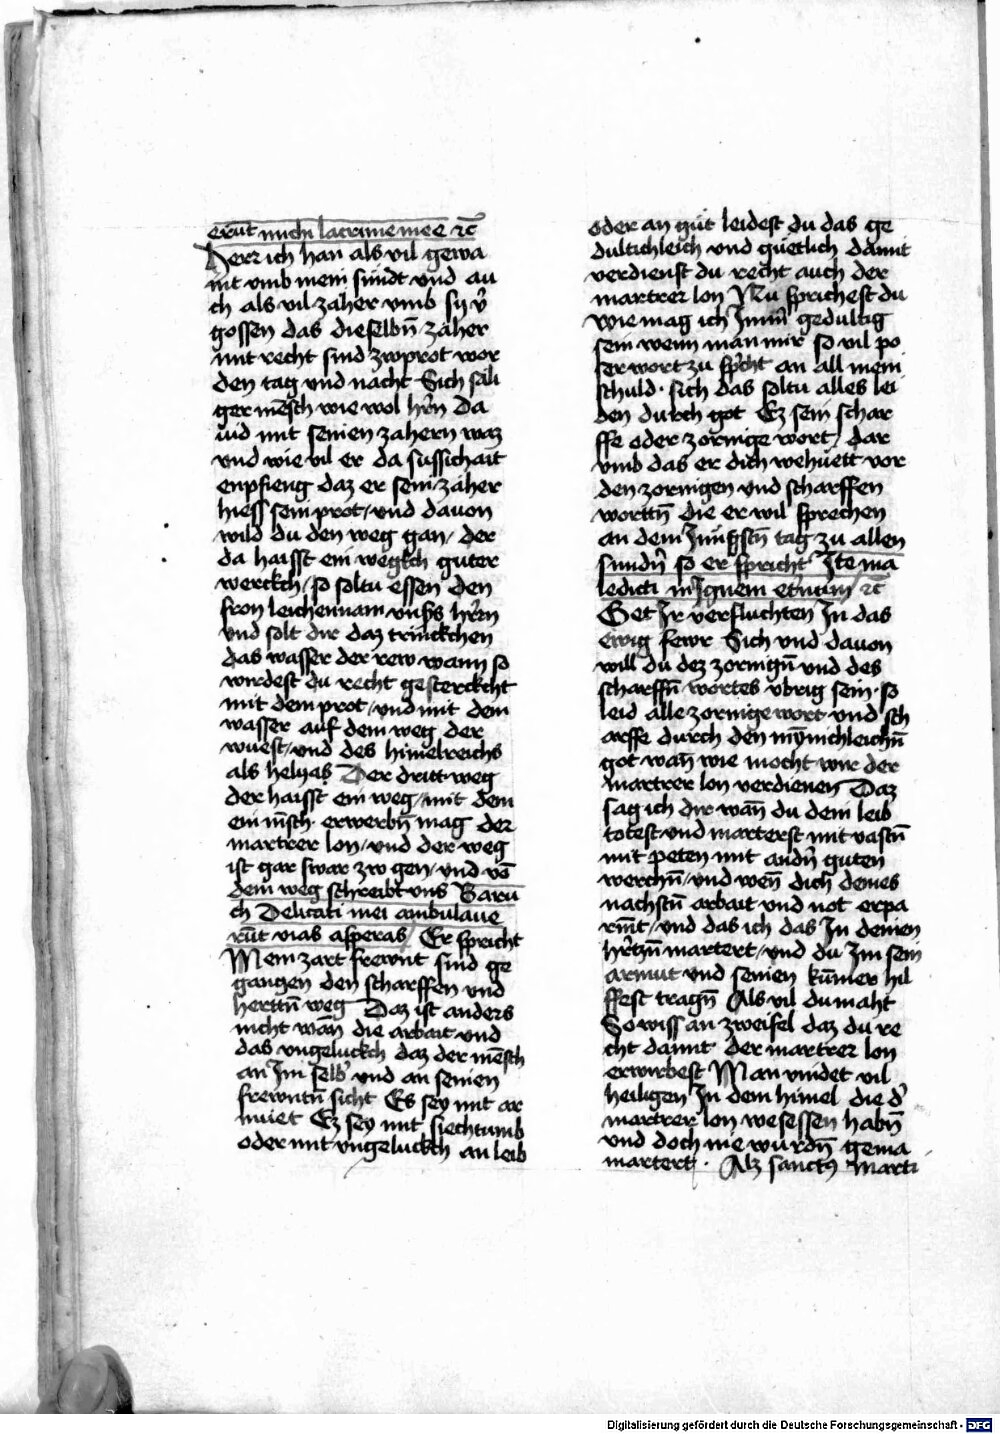 erūt michi lacrime mee ꝛc̄
Herr ich han als vil gewa
int vmb mein sündt vnd au
ch als vil zäher vmb sy v̄
gossen das dieselbn̄ zäher
mit recht sind zwprot wor
den tag vnd nacht Sich säli
ger mēsch wie wol hr̄n Da
uid mit seinen zähern waz
vnd wie vil er da süssichait
enpfieng daz er sein zäher
hiess sein prot / vnd dauon
wild du den weg gan / der
da haisst ein wegkch guter
werckch / so soltu essen den
fron leichennam vnsers hr̄rn
vnd solt dir daz trinckchen
das wasser der rew wann so
wirdest du recht gesterckcht
mit dem prot / vnd mit dem
wasser auf dem weg der
wüest / vnd des himelreichs
als helyas Der dritt weg
der haisst ein weg / mit dem
ein mēsch erwerbn̄ mag der
martrer lon / vnd der weg
ist gar swar zw gen / vnd vō
dem weg schreibt vns Baru
ch Delicati mei ambulaue
rūt vias asperas / Er spricht
Mein zart frewnt sind ge
gangen den scharffen vnd
herttn̄ weg Daz ist anders
nicht wān die arbait vnd
das vngeluckch daz der mēsch
an Im selb̄ vnd an seinen
frewntn̄ sicht Es sey mit ar
müet Ez sey mit siechtumb
oder mit vngeluckch an leib
oder an güt leidest du das ge
dultichleich vnd güetlich damit
verdienst du recht auch der
martrer lon Nu sprichest du
wie mag ich Im̄er gedultig
sein wenn man mir so vil po
ser wort zu sp̄cht an all mein
schuld · sich das soltu alles lei
den durch got Ez sein schar
ffe oder zornige wort / dar
vmb das er dich wehüett vor
den zornigen vnd scharffen
worttn̄ die er wil sprechen
an dem Jüngstn̄ tag zu allen
sundn̄ so er spricht Ite ma
ledicti in Ignem et̄num ꝛc̄
Get Ir verfluchten In das
ewig fewr Sich vnd dauon
will du dez zornign̄ vnd des
scharffn̄ wortes vbrig sein · so
leid alle zornige wort vnd sch
arffe durch den mynichleichn̄
got wān wie mocht wir der
martrer lon verdienen Daz
sag ich dir wān du dein leib
totest vnd marterst mit vastn̄
mit peten mit andn̄ guten
werchn̄ / vnd wen̄ dich deines
nachstn̄ arbait vnd not erpa
rmt / vnd das ich das In deinen
hr̄tzn̄ martert / vnd du Im sein
armut vnd seinen kūmer hil
ffest tragn̄ Als vil du maht
So wiss an zweifel daz du re
cht damit der martrer lon
erwirbest Man vindet vil
heiligen In dem himel die d̄
martrer lon wesessen habn̄
vnd doch nie wurdn̄ gema
martert · Alz sanctus Marti
Digitalisierung gefördert durch die Deutsche Forschungsgemeinschaft - DFG